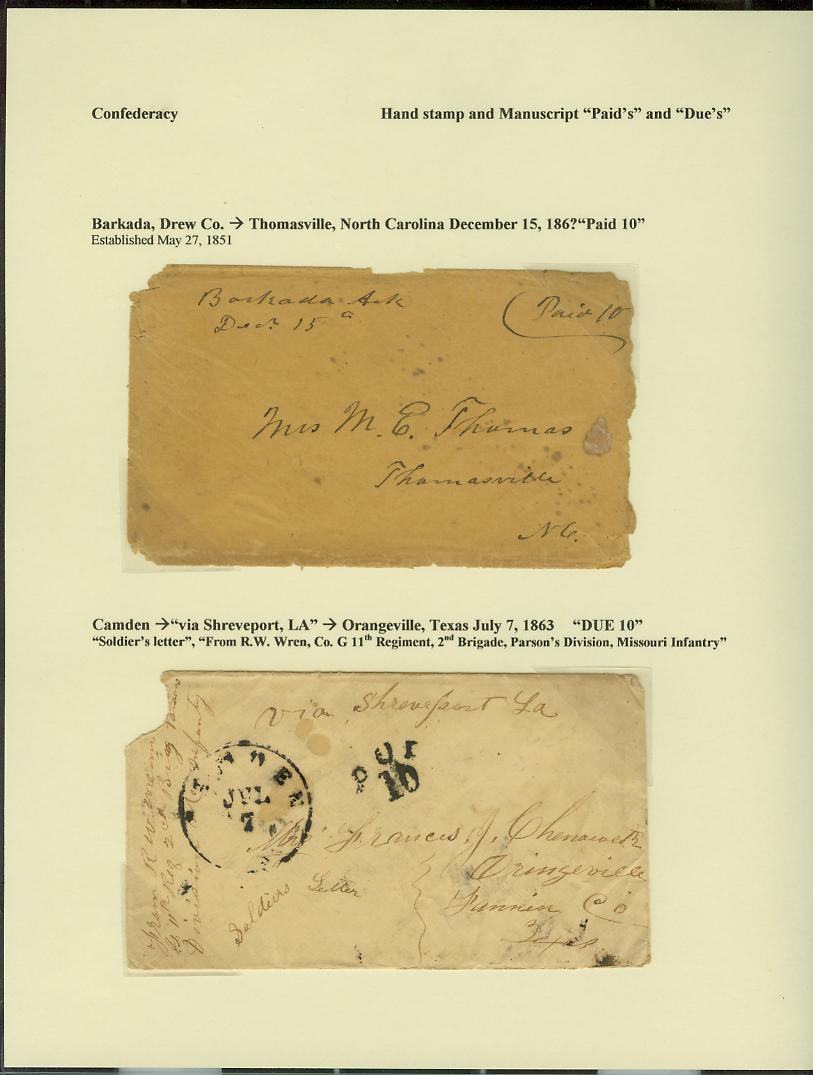 Confederacy
Hand stamp and Manuscript “Paid's” and “Due's”
Barkada, Drew Co. → Thomasville, North Carolina December 15, 186?“Paid 10”
Established May 27, 1851
Barkada Ark
Paid 10
Decr 15
Mrs M. E. Thomas
Thomasville
N C.
Camden →“via Shreveport, LA” → Orangeville, Texas July 7, 1863 “DUE 10”
“Soldier's letter”, “From R.W. Wren, Co. G 11th Regiment, 2nd Brigade, Parson's Division, Missouri Infantry”
via Shreveport La
DUE
10
JUL
7
Frances J. Chenoweth
Oringeville
Fannin Co
Texas
Soldiers Letter
From R W Wrenn
11th Reg 2nd Brig
Division Infanty